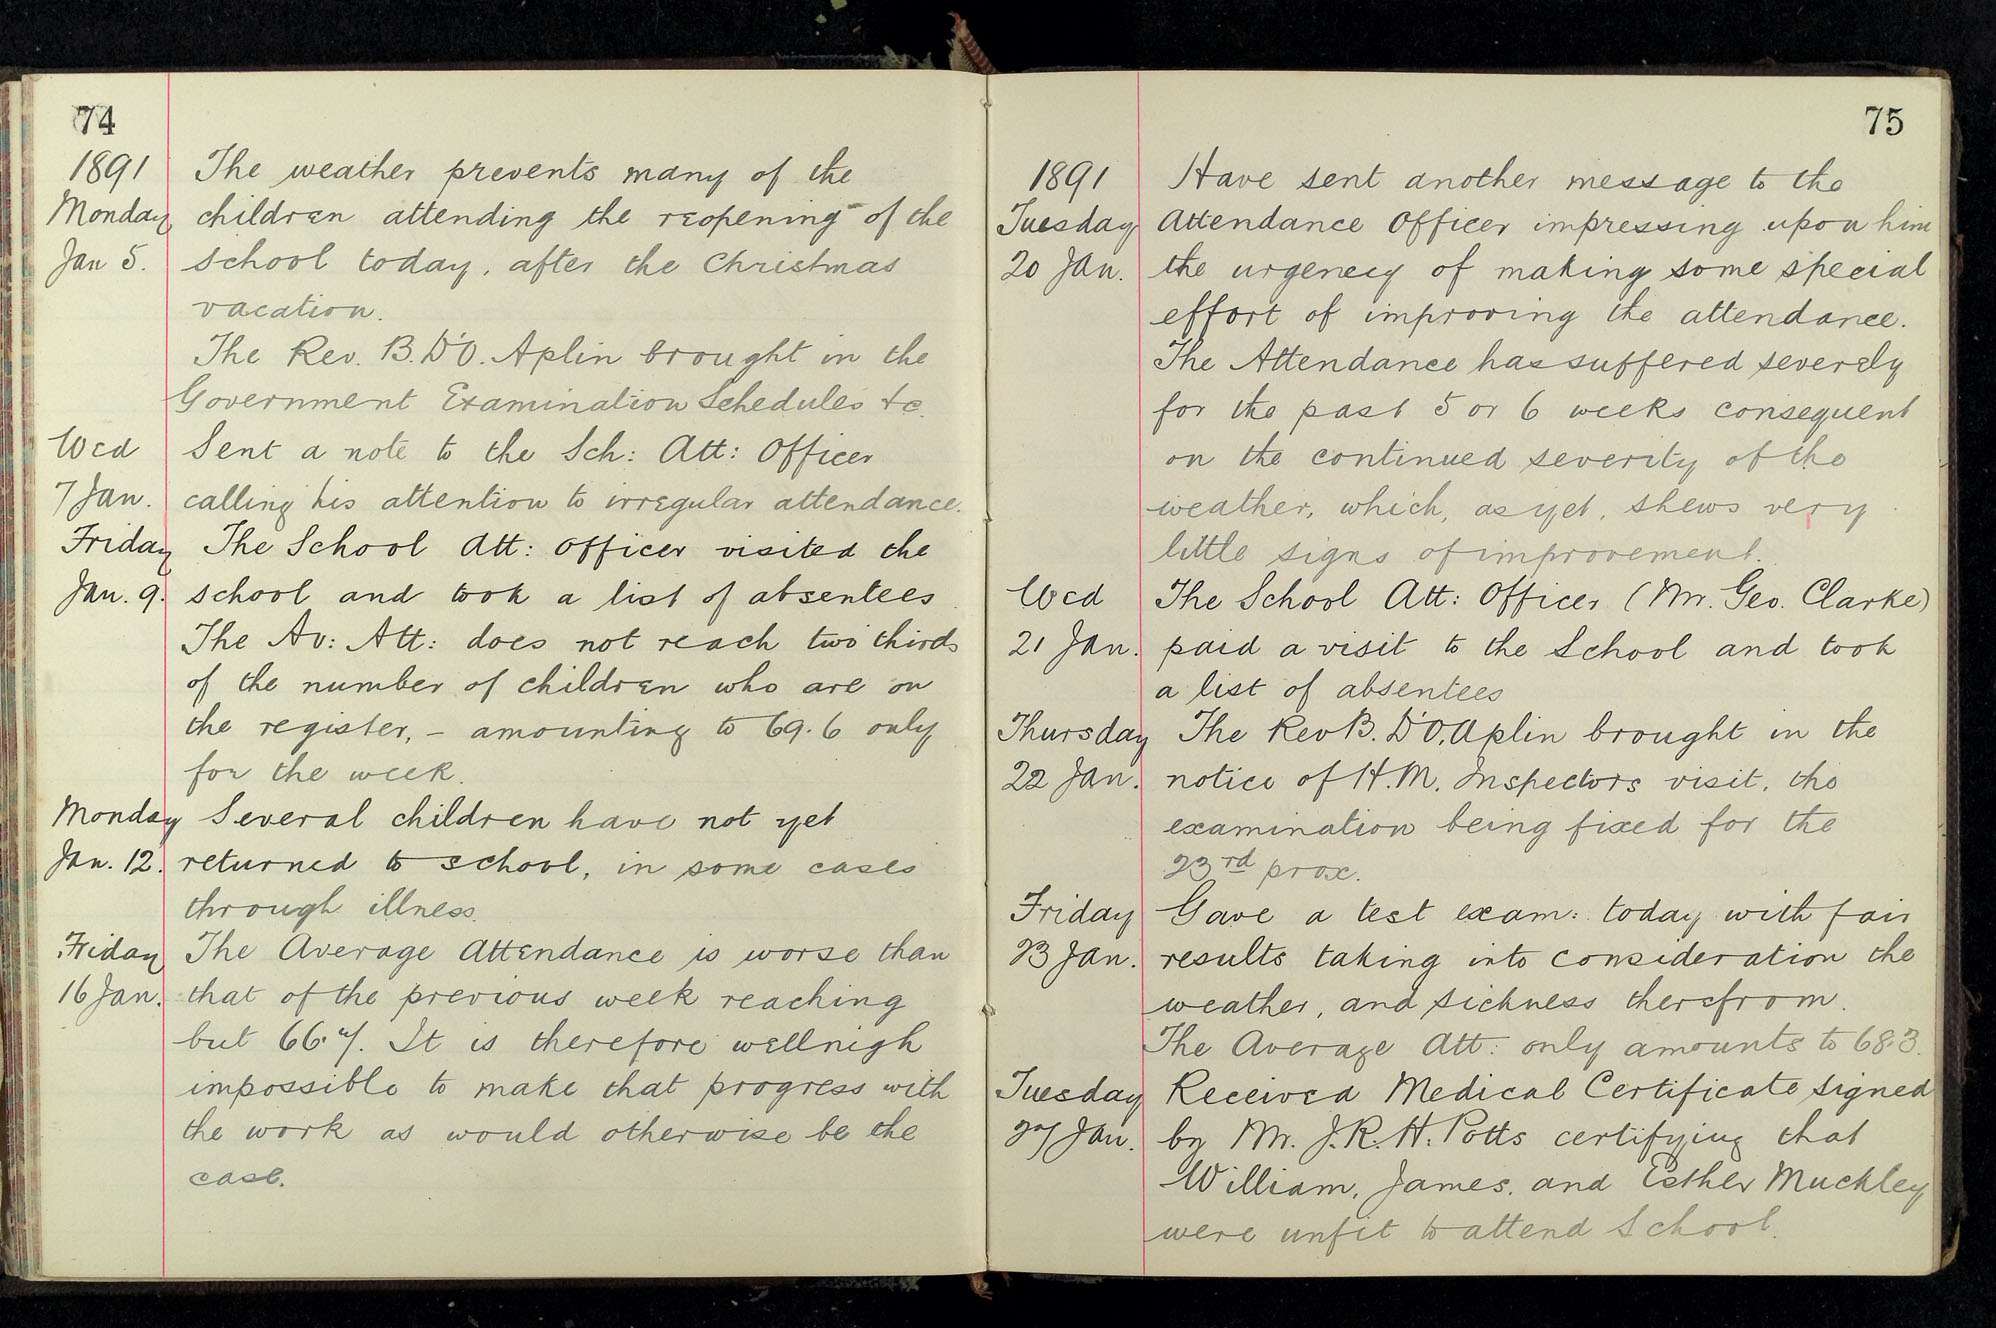 74
1891 The weather prevents many of the
Monday children attending the reopening of the
Jan 5. school today, after the Christmas
vacation.
The Rev. B. D'O. Aplin brought in the
Government Examination Schedules &c.
Wed Sent a note to the Sch: Att: Officer
7 Jan. calling his attention to irregular attendance.
Friday The School Att: Officer visited the
Jan. 9. school and took a list of absentees
The Av: Att: does not reach two thirds
of the number of children who are on
the register, – amounting to 69.6 only
for the week.
Monday Several children have not yet
Jan. 12. returned to school, in some cases
through illness.
Friday The Average Attendance is worse than
16 Jan. that of the previous week reaching
but It is therefore wellnigh
impossible to make that progress with
the work as would otherwise be the
case.
75
1891 Have sent another message to the
Tuesday Attendance Officer impressing upon him
20 Jan. the urgency of making some special
effort of improving the attendance.
The Attendance has suffered severely
for the past 5 or 6 weeks consequent
on the continued severity of the
weather, which, as yet, shews very
little signs of improvement.
Wed The School Att: Officer (Mr. Geo. Clarke)
21 Jan. paid a visit to the School and took
a list of absentees
Thursday The Rev B. D'O. Aplin brought in the
22 Jan. notice of H.M. Inspectors visit, the
examination being fixed for the
23rd prox.
Friday Gave a test exam: today with fair
23 Jan. results taking into consideration the
weather, and sickness therefrom.
The Average Att: only amounts to 68.3.
Tuesday Received Medical Certificate signed
27 Jan. by Mr. J.R.H. Potts certifying that
William, James, and Esther Muckley
were unfit to attend School.